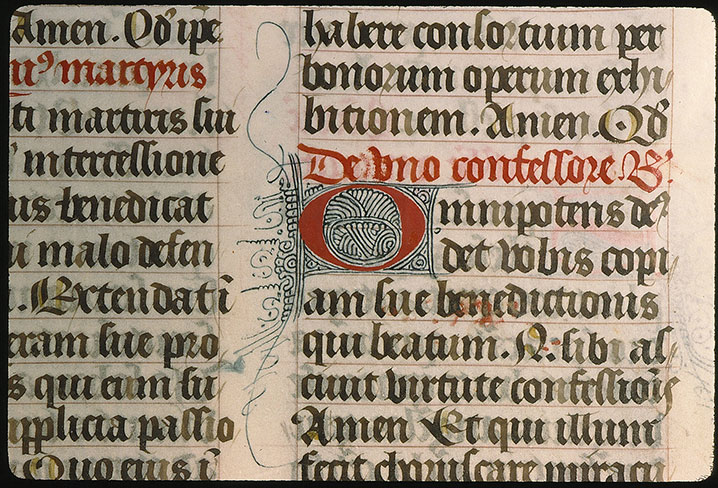 Amen. Qd' ipe
us martyris
ti martiris sui
intercessione
us benedicat
malo defen
Extendat i
eram sue pro
s qui eum su
pplicia passio
Quo eius i
habere consortium per
bonorum operum exhi
bitionem. Amen. Qd'
De vno confessore B'.
Omnipotens de'
det vobis copi
am sue benedictionis
qui beatum. N. sibi as
ciuit virtute confessiois
Amen Et qui illum
fecit choruscare miracu